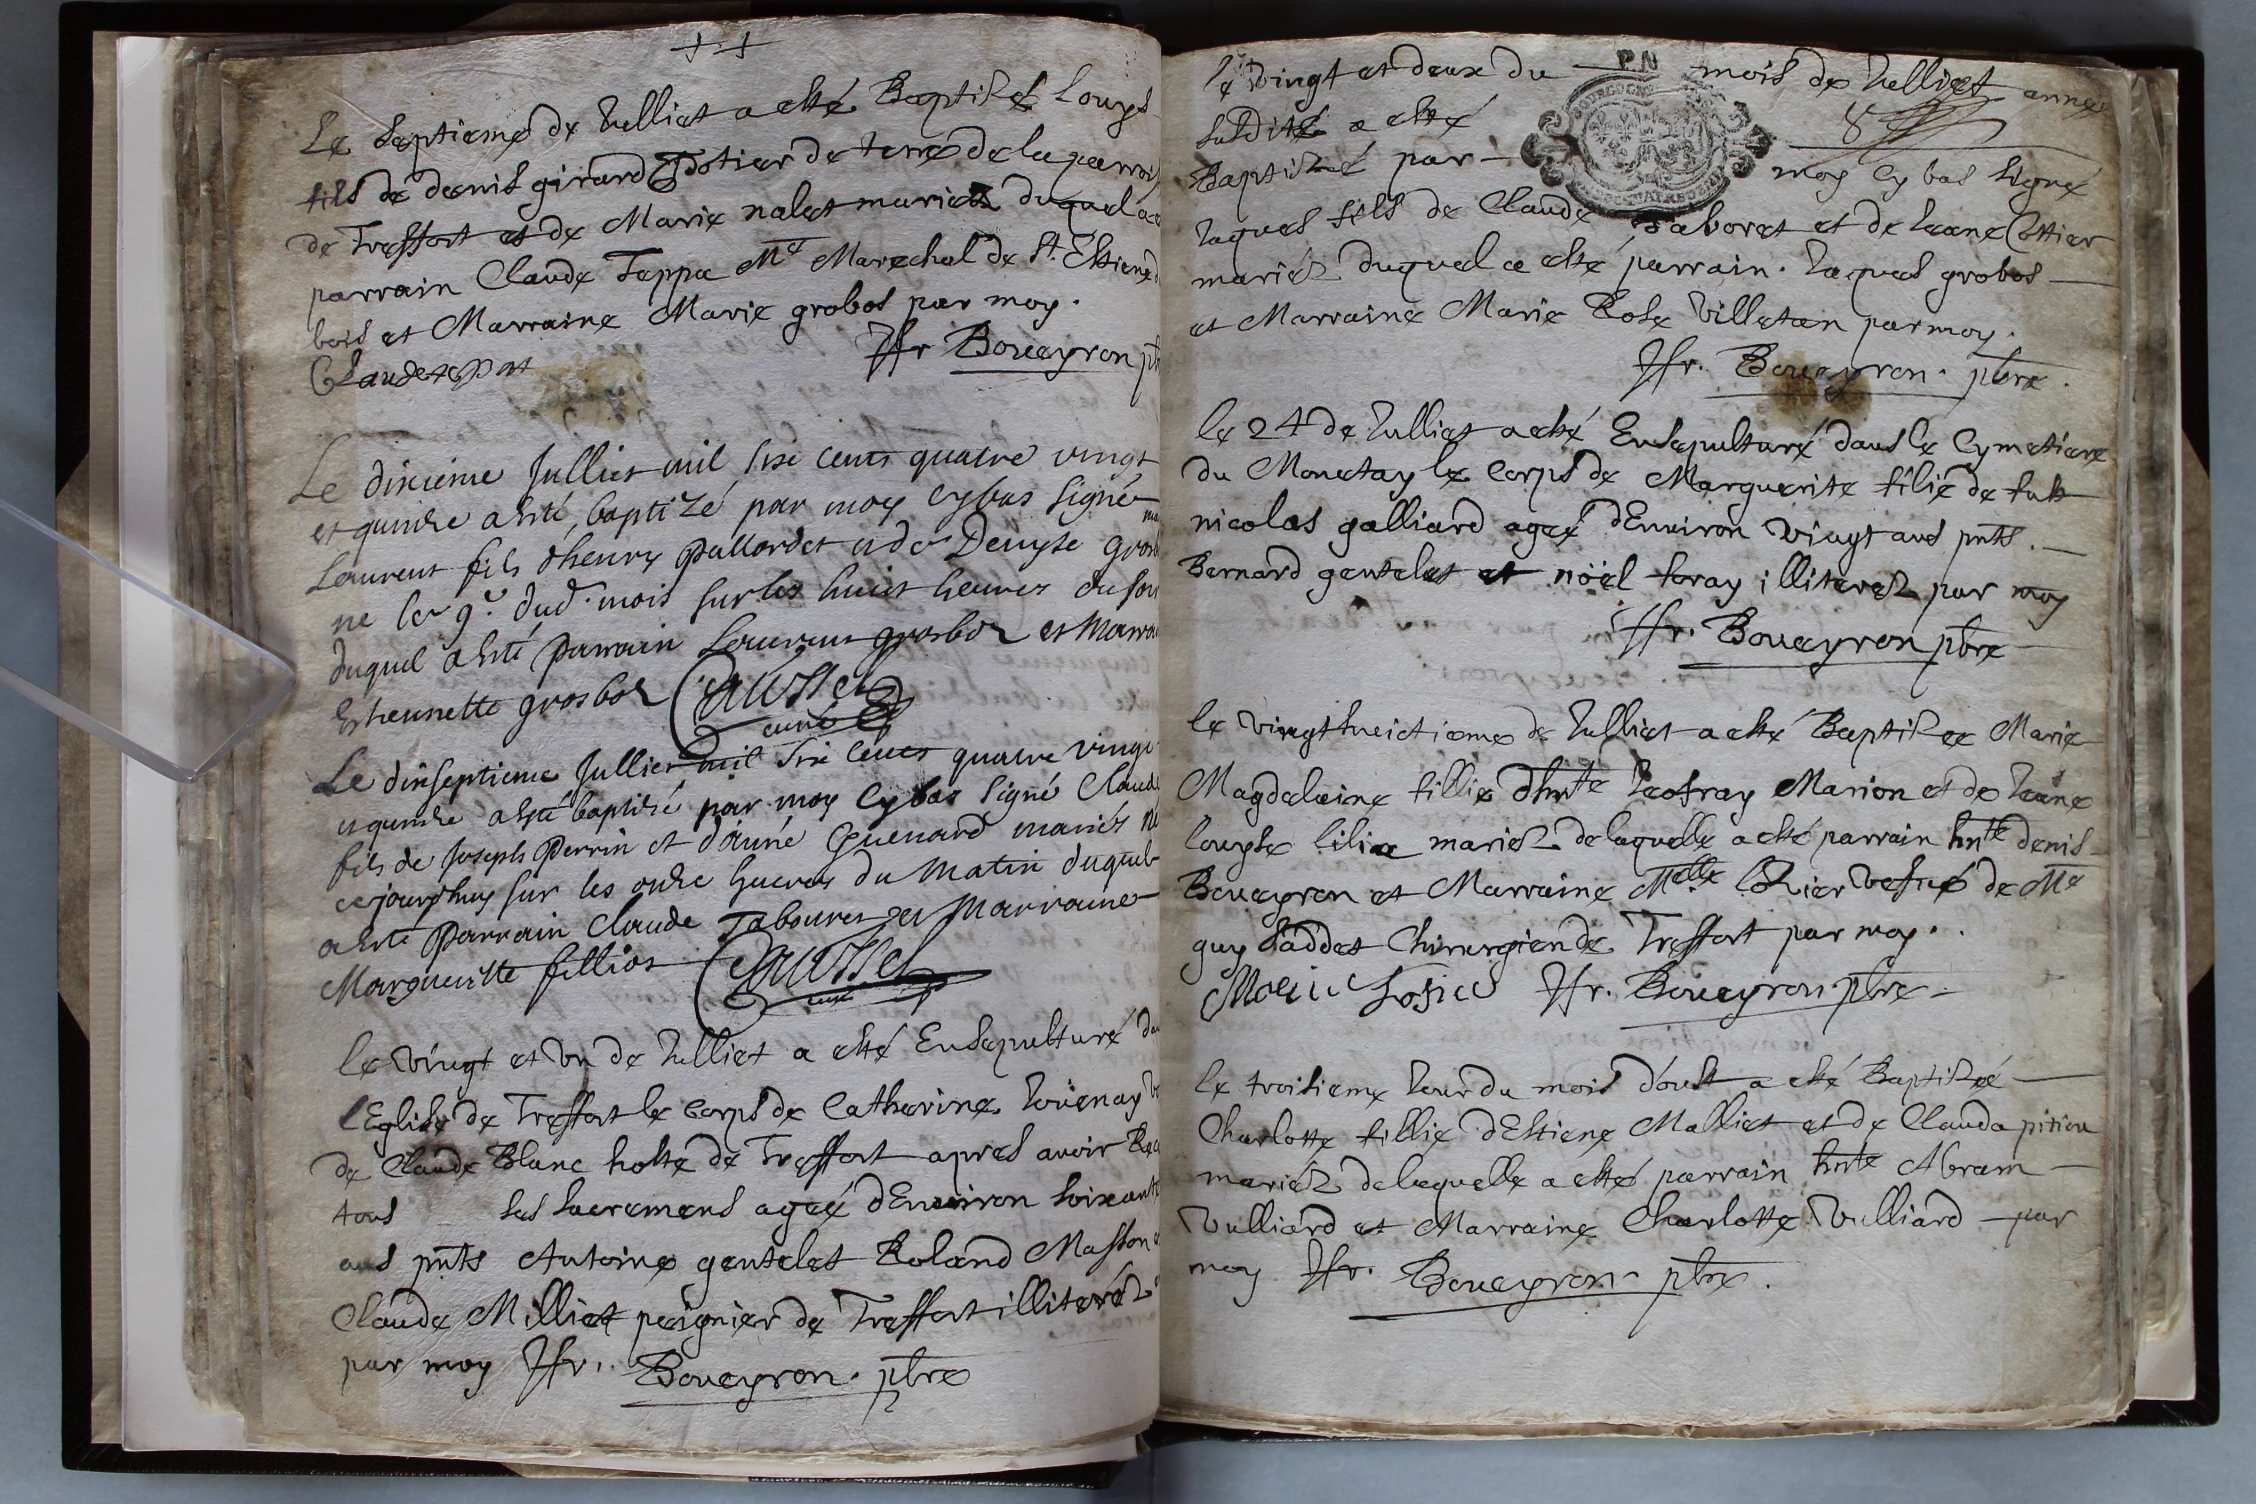 Le septieme de Julliet a esté Baptisé Louys
fils de denis girard potier de terre de la parroi
de Treffort et de Marie nalet mariez duquel a e
parrain Claude Tappa Me Marechal de St Estiene d
bois et Marraine Marie grobos par moy.
Claude tapat Jfr Boueyron ptr
Le dixieme Julliet mil six cents quatre vingt
et quinze a esté baptizé par moy cy bas signé
Laurent fils d'henry pallordet et de Denyse grosb
ne le 9e dud. mois sur les huict heures du soir
duquel a esté parrain Laurens grosboz et Marra
Estiennette grosboz Caussel
curé
Le dixseptieme Jullier mil six cents quatre vingt
et quinze a esté baptizé par moy cy bas signé Claude
fils de Joseph Perrin et d'aimé Guenard mariés né
ce jourdhuy sur les onze heures du matin duquel
a esté Parrain Claude Tabouret et Marraine
Margueritte fillion Caussel
curé
le vingt et vn de Julliet a esté Ensepulturé da
l'Eglise de Treffort le corps de Catherine Joüenay v
de Claude Blanc hoste de Treffort apres avoir Rec
tous ses sacremens agée d'Environ soixante
ans pnts Antoine gentelet Roland Masson e
Claude Milliet peignier de Treffort illiteréz
par moy Jfr. Boueyron. ptre
le vingt et deux du mois de Julliet année
susditte a esté
Baptisé par moy cy bas signé
Jaques fils de Claude Taboret et de Jeane Cottier
mariéz duquel a esté parrain. Jaques grobos
et Marraine Marie Rose Villetan par moy.
Jfr. Boueyron. ptre.
le 24 de Julliet a esté Ensepulturé dans le Cymetiere
du Monetay le corps de Marguerite fillie de fut
nicolas galliard agée d'Environ vingt ans pnts.
Bernard gentelet et noël foray illiterez par moy
Jfr. Boueyron ptre
le vingt huictieme de Julliet a esté Baptisee Marie
Magdeleine fillie d'hnte Jeofray Marion et de Jeane
louyse lilia mariez de laquelle a esté parrain hnte denis
Boueyron et Marraine Melle Lozier vefue de Me
guy Saddet Chirurgien de Treffort par moy.
Jfr. Boueyron ptre
le troisieme Jour du mois d'oust a esté Baptisée
Charlotte fillie d'Estiene Malliet et de Clauda pitiou
mariéz de laquelle a esté parrain hnte Abram
Vulliard et Marraine Charlotte Vulliard par
moy Jfr. Boueyron ptre.